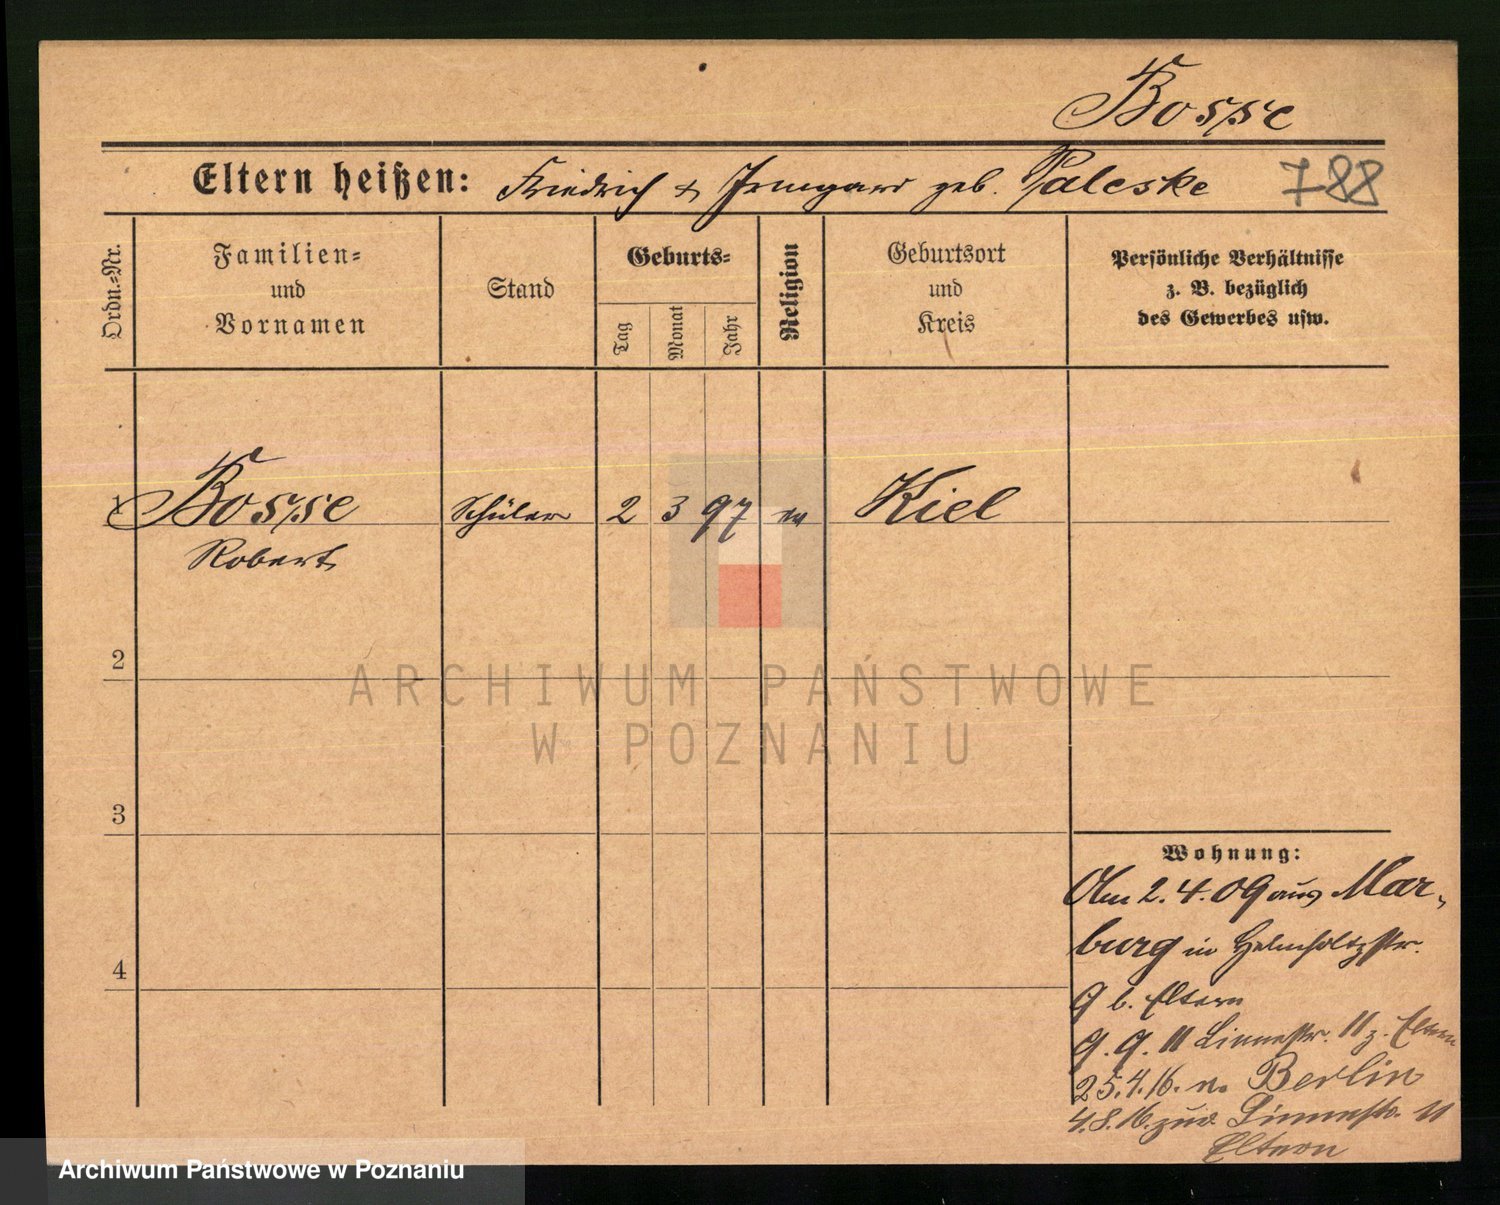 Bosse
Eltern heißen: Friedrich & Irmgard geb. Paleske 788
Ordn.-Nr.
Familien-
und
Vornamen
Stand
Geburts-
Tag
Monat
Jahr
Religion
Geburtsort
und
Kreis
Persönliche Verhältnisse
z. B. bezüglich
des Gewerbes usw.
1 Bosse Schüler 2 3 97 ev Kiel
Robert
2
3
4
ARCHIWUM PAŃSTWOWE
W POZNANIU
Wohnung:
Am 2.4.09 aus Mar-
burg in Helmholtzstr.
9 b. Eltern
9.9.11 Linnestr. 11 z. Eltern
25.4.16. n. Berlin
4.8.16. zur. Linnestr. 11
Eltern
Archiwum Państwowe w Poznaniu